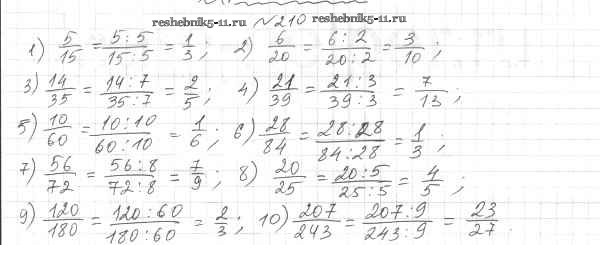 reshebnik5-11.ru №210 reshebnik5-11.ru
1) 5/15 = 5:5/15:5 = 1/3; 2) 6/20 = 6:2/20:2 = 3/10;
3) 14/35 = 14:7/35:7 = 2/5; 4) 21/39 = 21:3/39:3 = 7/13;
5) 10/60 = 10:10/60:10 = 1/6; 6) 28/84 = 28:28/84:28 = 1/3;
7) 56/72 = 56:8/72:8 = 7/9; 8) 20/25 = 20:5/25:5 = 4/5;
9) 120/180 = 120:60/180:60 = 2/3; 10) 207/243 = 207:9/243:9 = 23/27.